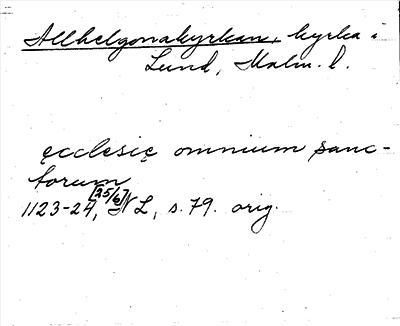 Allhelgonakyrkan, kyrka i
Lund, Malm. l.
ęcclesię omnium sanc-
torum
[25/6]
1123-24, NL, s. 79. orig.